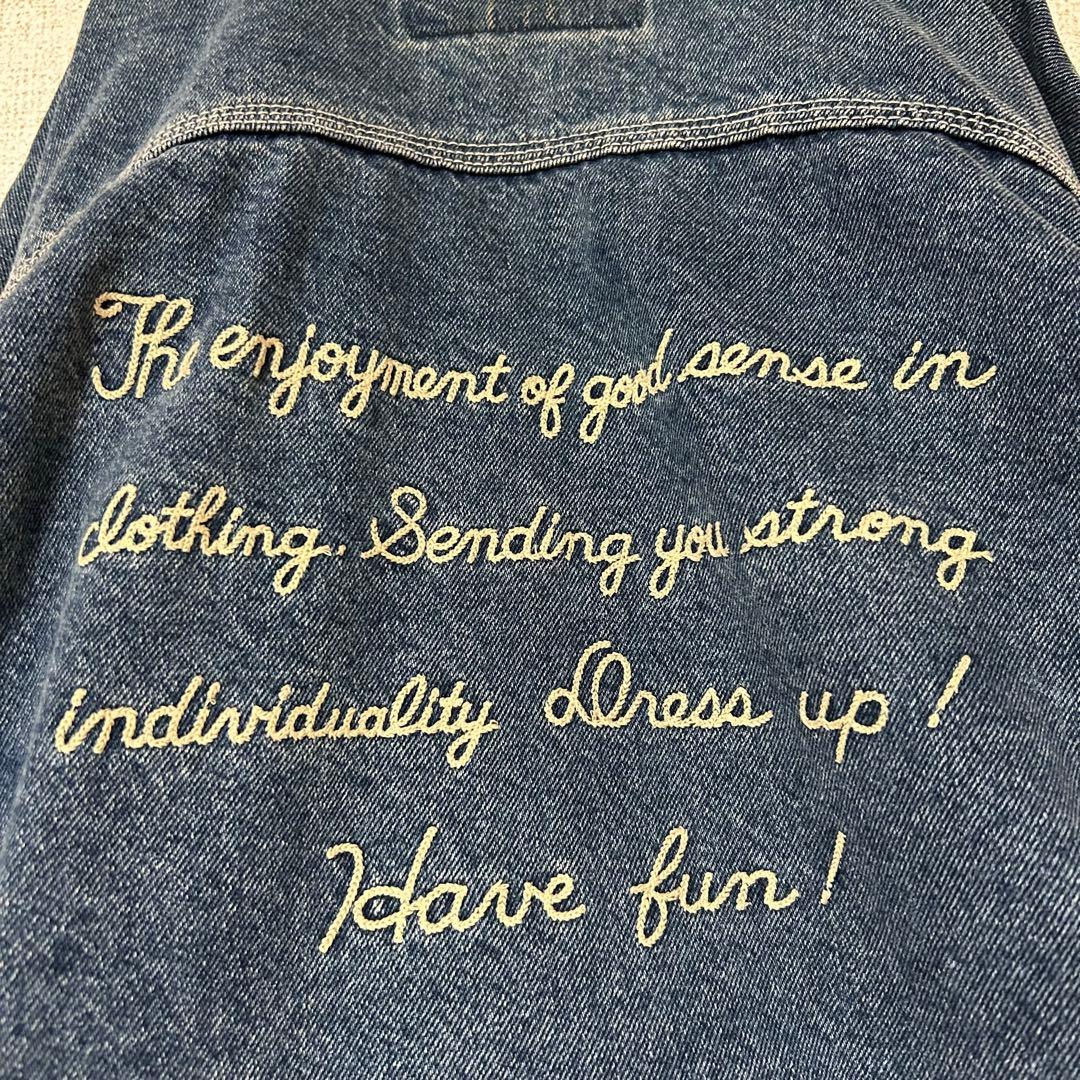 The enjoyment of good sense in
clothing. Sending you strong
individuality Dress up!
Have fun!